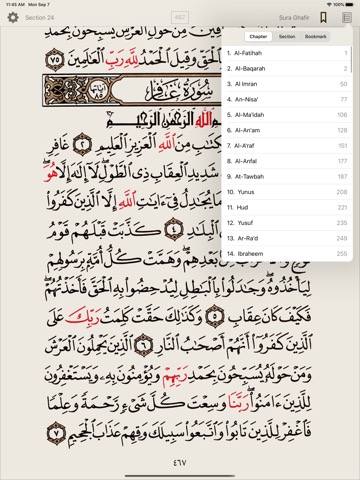 11:45 AM Mon Sep 7
100%
Section 24
467
Sura Ghafir
Chapter Section Bookmark
1. Al-Fatihah 1
2. Al-Baqarah 2
3. Al Imran 50
4. An-Nisa' 77
5. Al-Ma'idah 106
6. Al-An'am 128
7. Al-A'raf 151
8. Al-Anfal 177
9. At-Tawbah 187
10. Yunus 208
11. Hud 221
12. Yusuf 235
13. Ar-Ra'd 249
14. Ibraheem 255
يُسَبِّحُونَ بِحَمْدِ
وَقِيلَ ٱلْحَمْدُ لِلَّهِ رَبِّ ٱلْعَٰلَمِينَ ٧٥
سُورَةُ غَافِرٍ
ٱللَّهِ ٱلرَّحْمَٰنِ ٱلرَّحِيمِ
مِنَ ٱللَّهِ ٱلْعَزِيزِ ٱلْعَلِيمِ ٢ غَافِرِ
شَدِيدِ ٱلْعِقَابِ ذِى ٱلطَّوْلِ لَآ إِلَٰهَ إِلَّا هُوَ
مَا يُجَٰدِلُ فِىٓ ءَايَٰتِ ٱللَّهِ إِلَّا ٱلَّذِينَ كَفَرُوا۟
ٱلْبِلَٰدِ ٤ كَذَّبَتْ قَبْلَهُمْ قَوْمُ
بَعْدِهِمْ وَهَمَّتْ كُلُّ أُمَّةٍۭ بِرَسُولِهِمْ
لِيَأْخُذُوهُ وَجَٰدَلُوا۟ بِٱلْبَٰطِلِ لِيُدْحِضُوا۟ بِهِ ٱلْحَقَّ فَأَخَذْتُهُمْ
فَكَيْفَ كَانَ عِقَابِ ٥ وَكَذَٰلِكَ حَقَّتْ كَلِمَتُ رَبِّكَ عَلَى
ٱلَّذِينَ كَفَرُوٓا۟ أَنَّهُمْ أَصْحَٰبُ ٱلنَّارِ ٦ ٱلَّذِينَ يَحْمِلُونَ ٱلْعَرْشَ
وَمَنْ حَوْلَهُۥ يُسَبِّحُونَ بِحَمْدِ رَبِّهِمْ وَيُؤْمِنُونَ بِهِۦ وَيَسْتَغْفِرُونَ
لِلَّذِينَ ءَامَنُوا۟ رَبَّنَا وَسِعْتَ كُلَّ شَىْءٍ رَّحْمَةً وَعِلْمًا
فَٱغْفِرْ لِلَّذِينَ تَابُوا۟ وَٱتَّبَعُوا۟ سَبِيلَكَ وَقِهِمْ عَذَابَ ٱلْجَحِيمِ ٧
٤٦٧